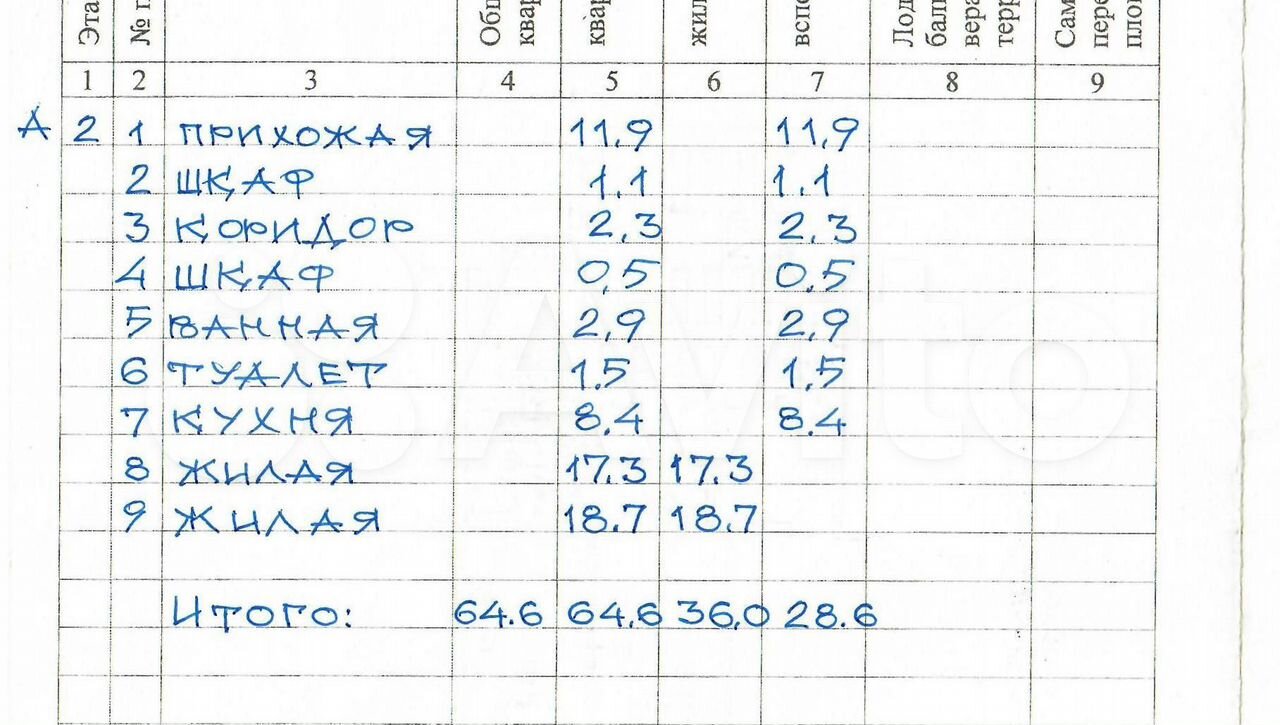 Эта № п Общ квар квар жил вспо Лод балк вера терр Сам пере плоп
1 2 3 4 5 6 7 8 9
А 2 1 ПРИХОЖАЯ 11,9 11,9
2 ШКАФ 1,1 1,1
3 КОРИДОР 2,3 2,3
4 ШКАФ 0,5 0,5
5 ВАННАЯ 2,9 2,9
6 ТУАЛЕТ 1,5 1,5
7 КУХНЯ 8.4 8.4
8 ЖИЛАЯ 17,3 17,3
9 ЖИЛАЯ 18.7 18.7
ИТОГО: 64.6 64,6 36,0 28.6
Avito